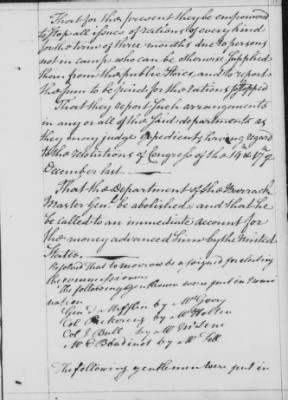 That for the present they be empowered
to stop all issues of rations of every kind
for the term of three months due to persons
not in camp who can be otherwise supplied
than from the public stores, and to report
the sum to be paid for the rations so stopped
That they report such arrangements
in any or all of the said departments as
they may judge expedient, having regard
to the resolutions of Congress of the 14 & 17 of
December last.
That the Department of the Barrack
Master Genl. be abolished and that he
be called to an immediate account for
the money advanced him by the United
States.
Resolved That to morrow be assigned for electing
the commissioners
The following gentlemen were put in nomi
nation
Genl. Mifflin by Mr Gerry
Col Pickering by Mr Holten
Col J Bull by Mr
Mr E Boudinot by Mr Fell
The following gentlemen were put in